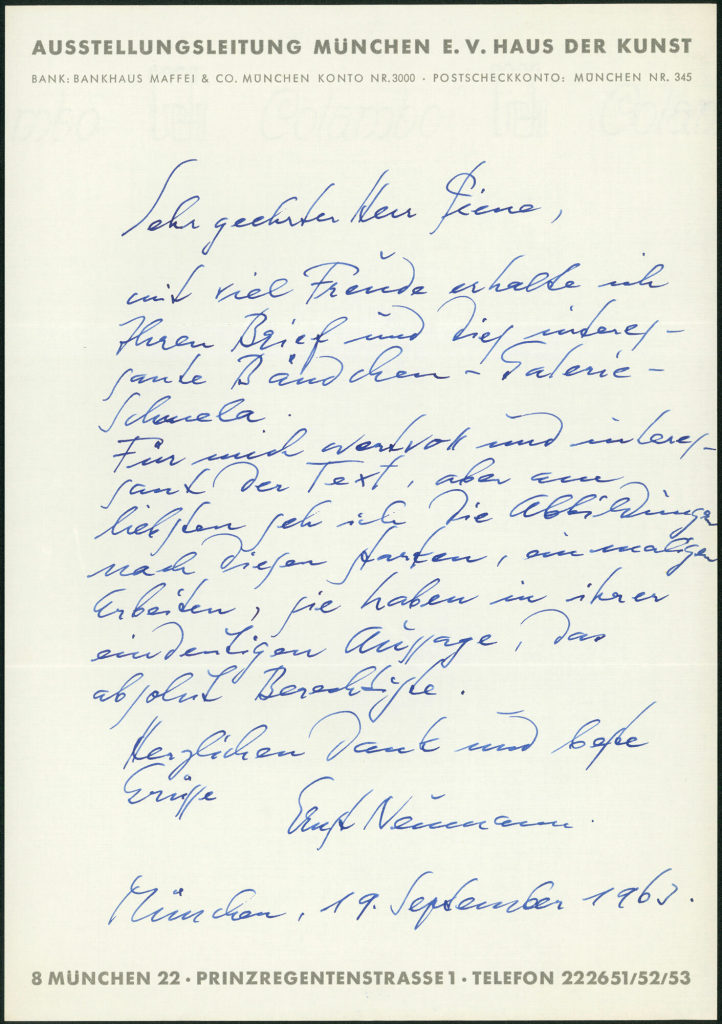 AUSSTELLUNGSLEITUNG MÜNCHEN E. V. HAUS DER KUNST
BANK: BANKHAUS MAFFEI & CO. MÜNCHEN KONTO NR. 3000 · POSTSCHECKKONTO: MÜNCHEN NR. 345
Sehr geehrter Herr Piene,
mit viel Freude erhalte ich
Ihren Brief und dies interes-
sante Bändchen - Galerie -
Schmela.
Für mich wertvoll und interes-
sant der Text, aber am
liebsten seh ich die Abbildungen
nach diesen starken, einmaligen
Arbeiten, sie haben in ihrer
eindeutigen Aussage, das
absolut Berechtigte.
Herzlichen Dank und beste
Grüsse
Ernst Neumann.
München, 19. September 1963.
8 MÜNCHEN 22 · PRINZREGENTENSTRASSE 1 · TELEFON 222651/52/53